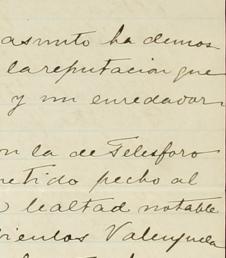 asunto ha demos
la reputación que
y un enredador.
on la de Telesforo
metido pecho al
lealtad notable
Valenzuela